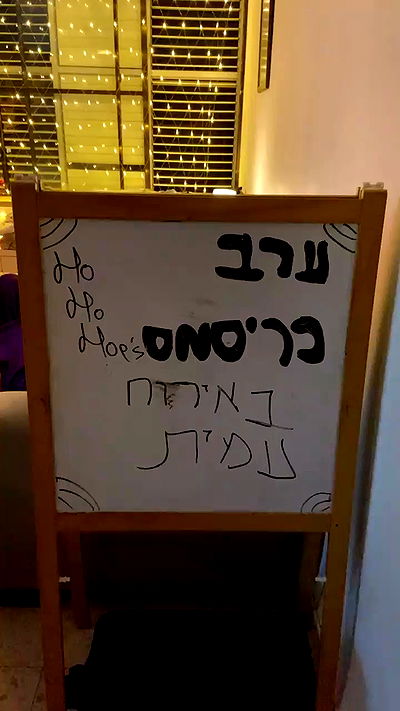 ערב
כריסמס
באירוח
עמית
Ho
Ho
Hoe's